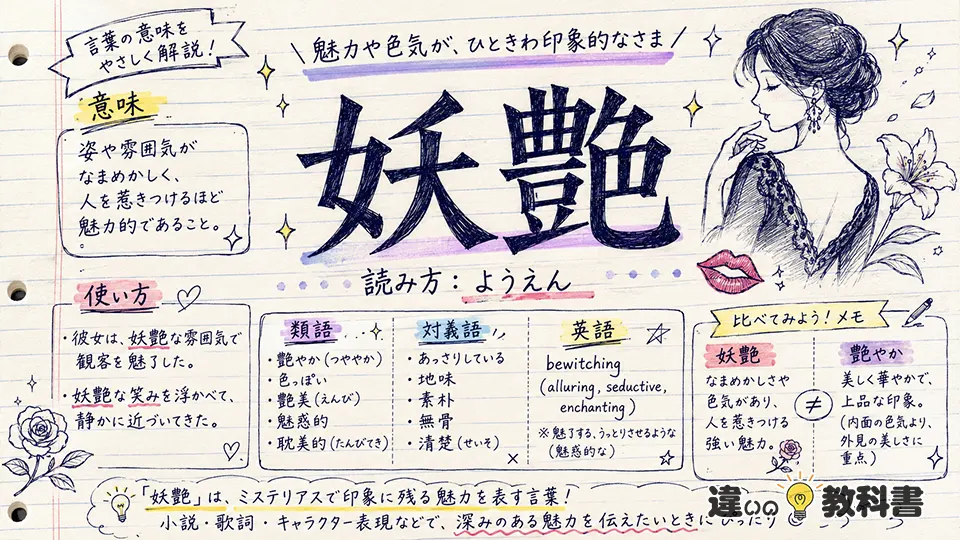 言葉の意味を
やさしく解説！
魅力や色気が、ひときわ印象的なさま
妖艶
読み方：ようえん
意味
姿や雰囲気が
なまめかしく、
人を惹きつけるほど
魅力的であること。
使い方
・彼女は、妖艶な雰囲気で
観客を魅了した。
・妖艶な笑みを浮かべて、
静かに近づいてきた。
類語
・艶やか（つややか）
・色っぽい
・艶美（えんび）
・魅惑的
・耽美的（たんびてき）
対義語
・あっさりしている
・地味
・素朴
・無骨
・清楚（せいそ）
英語
bewitching
(alluring, seductive,
enchanting)
※魅了する、うっとりさせるような
（魅惑的な）
比べてみよう！メモ
妖艶
なまめかしさや
色気があり、
人を惹きつける
強い魅力。
≠
艶やか
美しく華やかで、
上品な印象。
（内面の色気より、
外見の美しさに
重点）
「妖艶」は、ミステリアスで印象に残る魅力を表す言葉！
小説・歌詞・キャラクター表現などで、深みのある魅力を伝えたいときにぴったり
違いの教科書